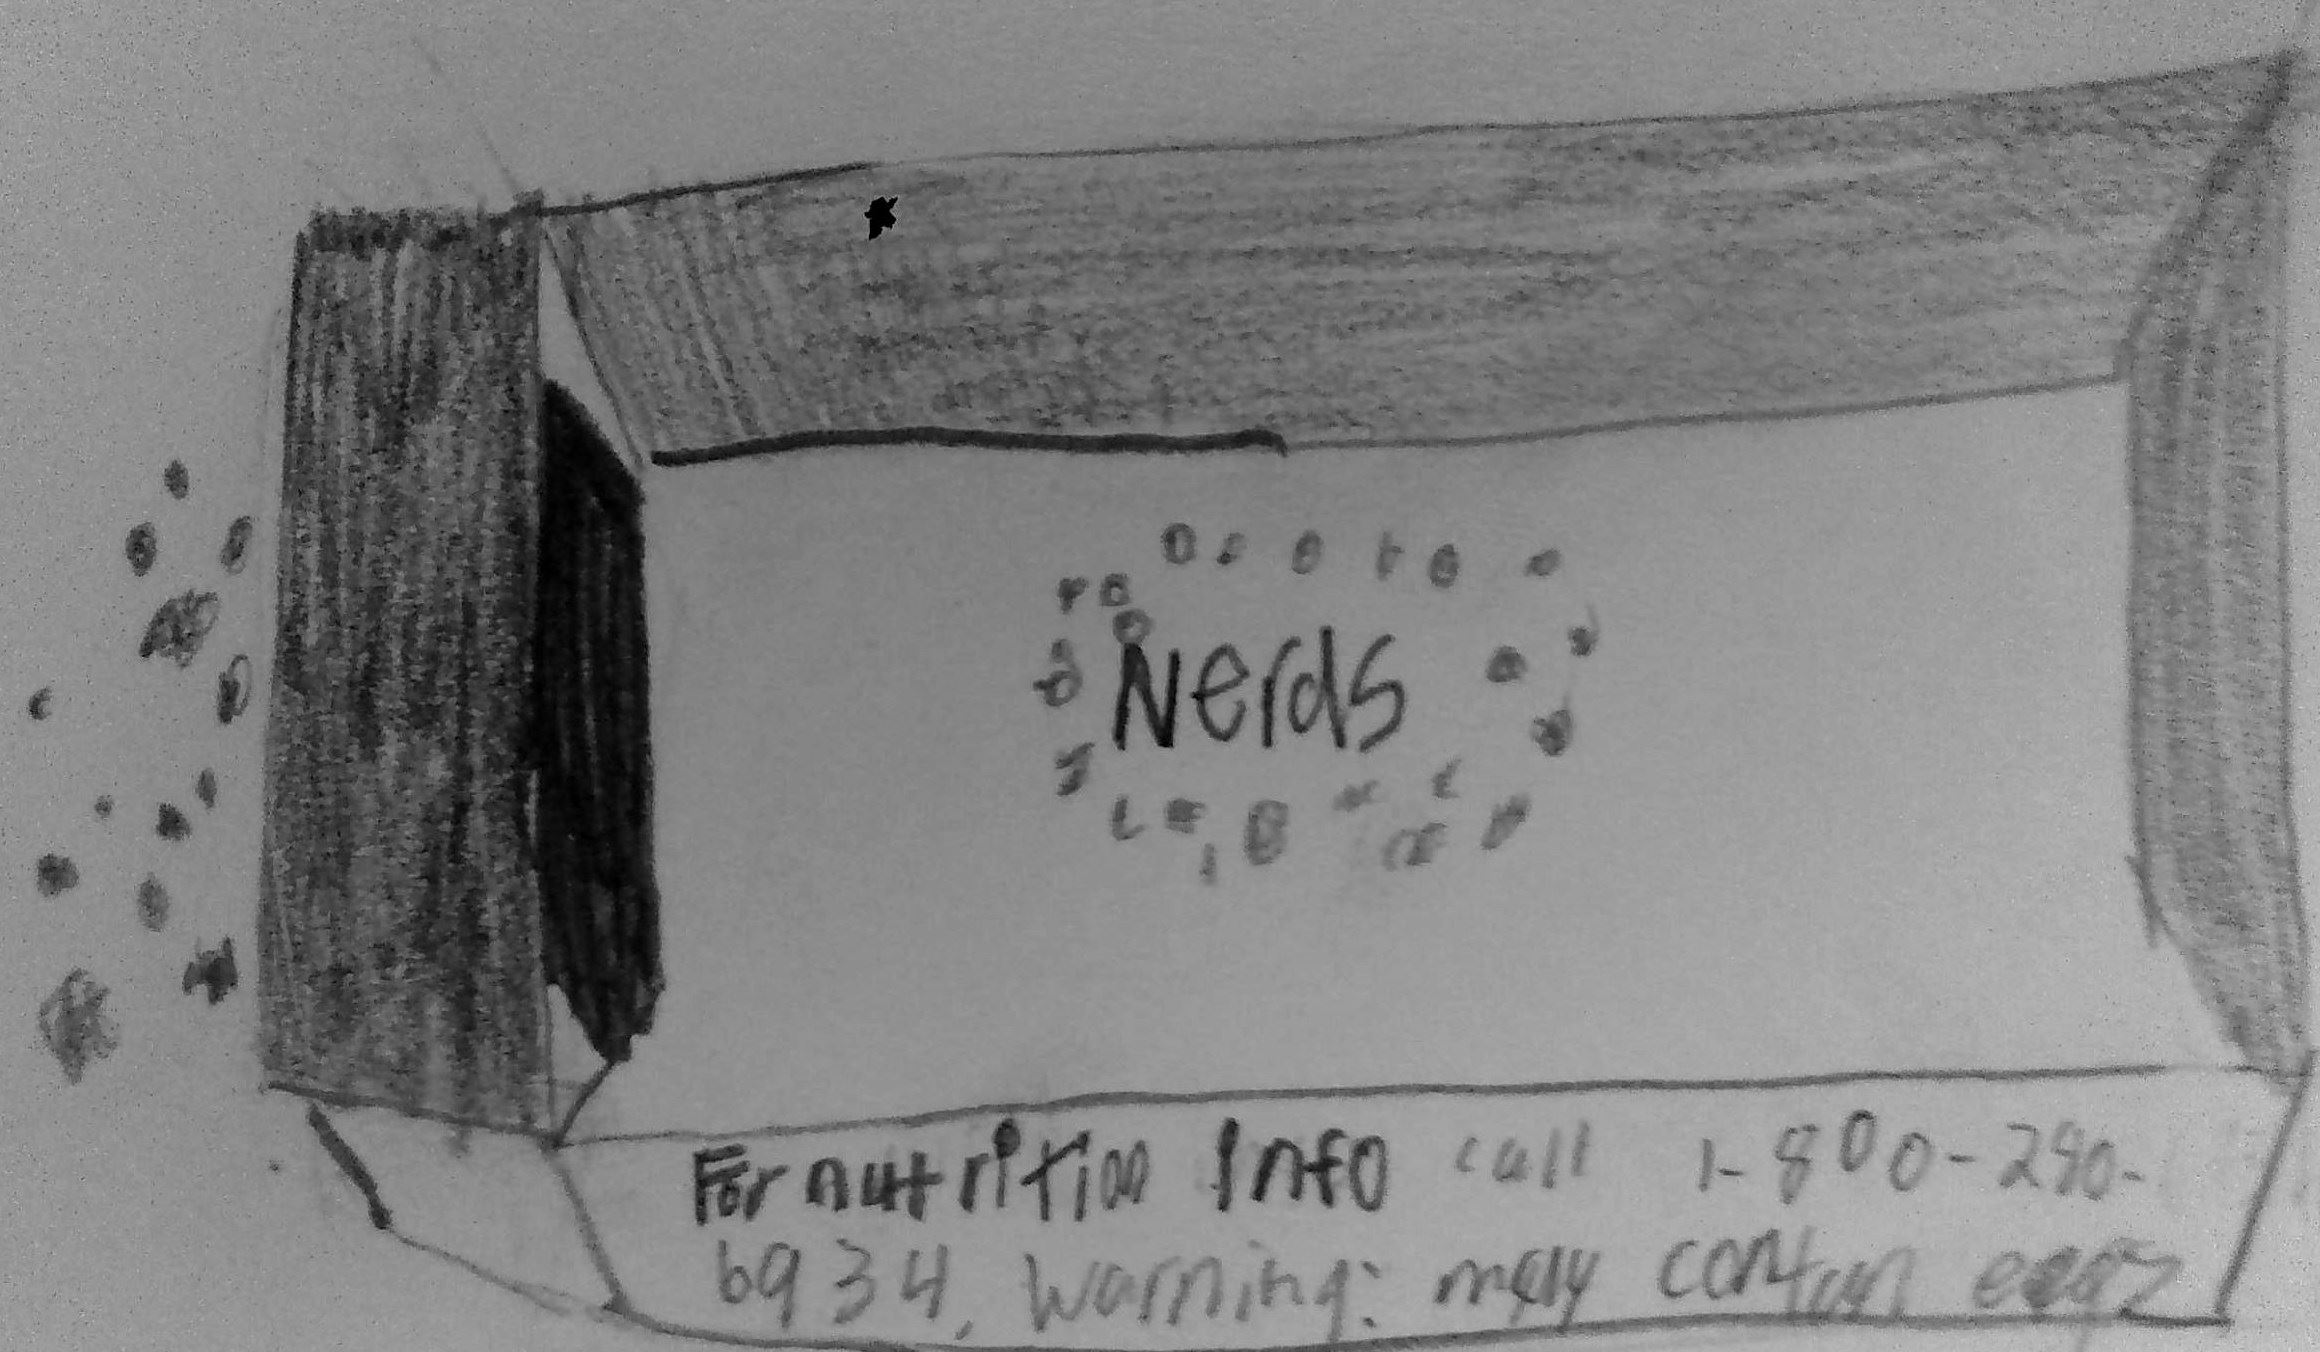 Nerds
For nutrition Info call 1-800-280-
6934, Warning: may contain